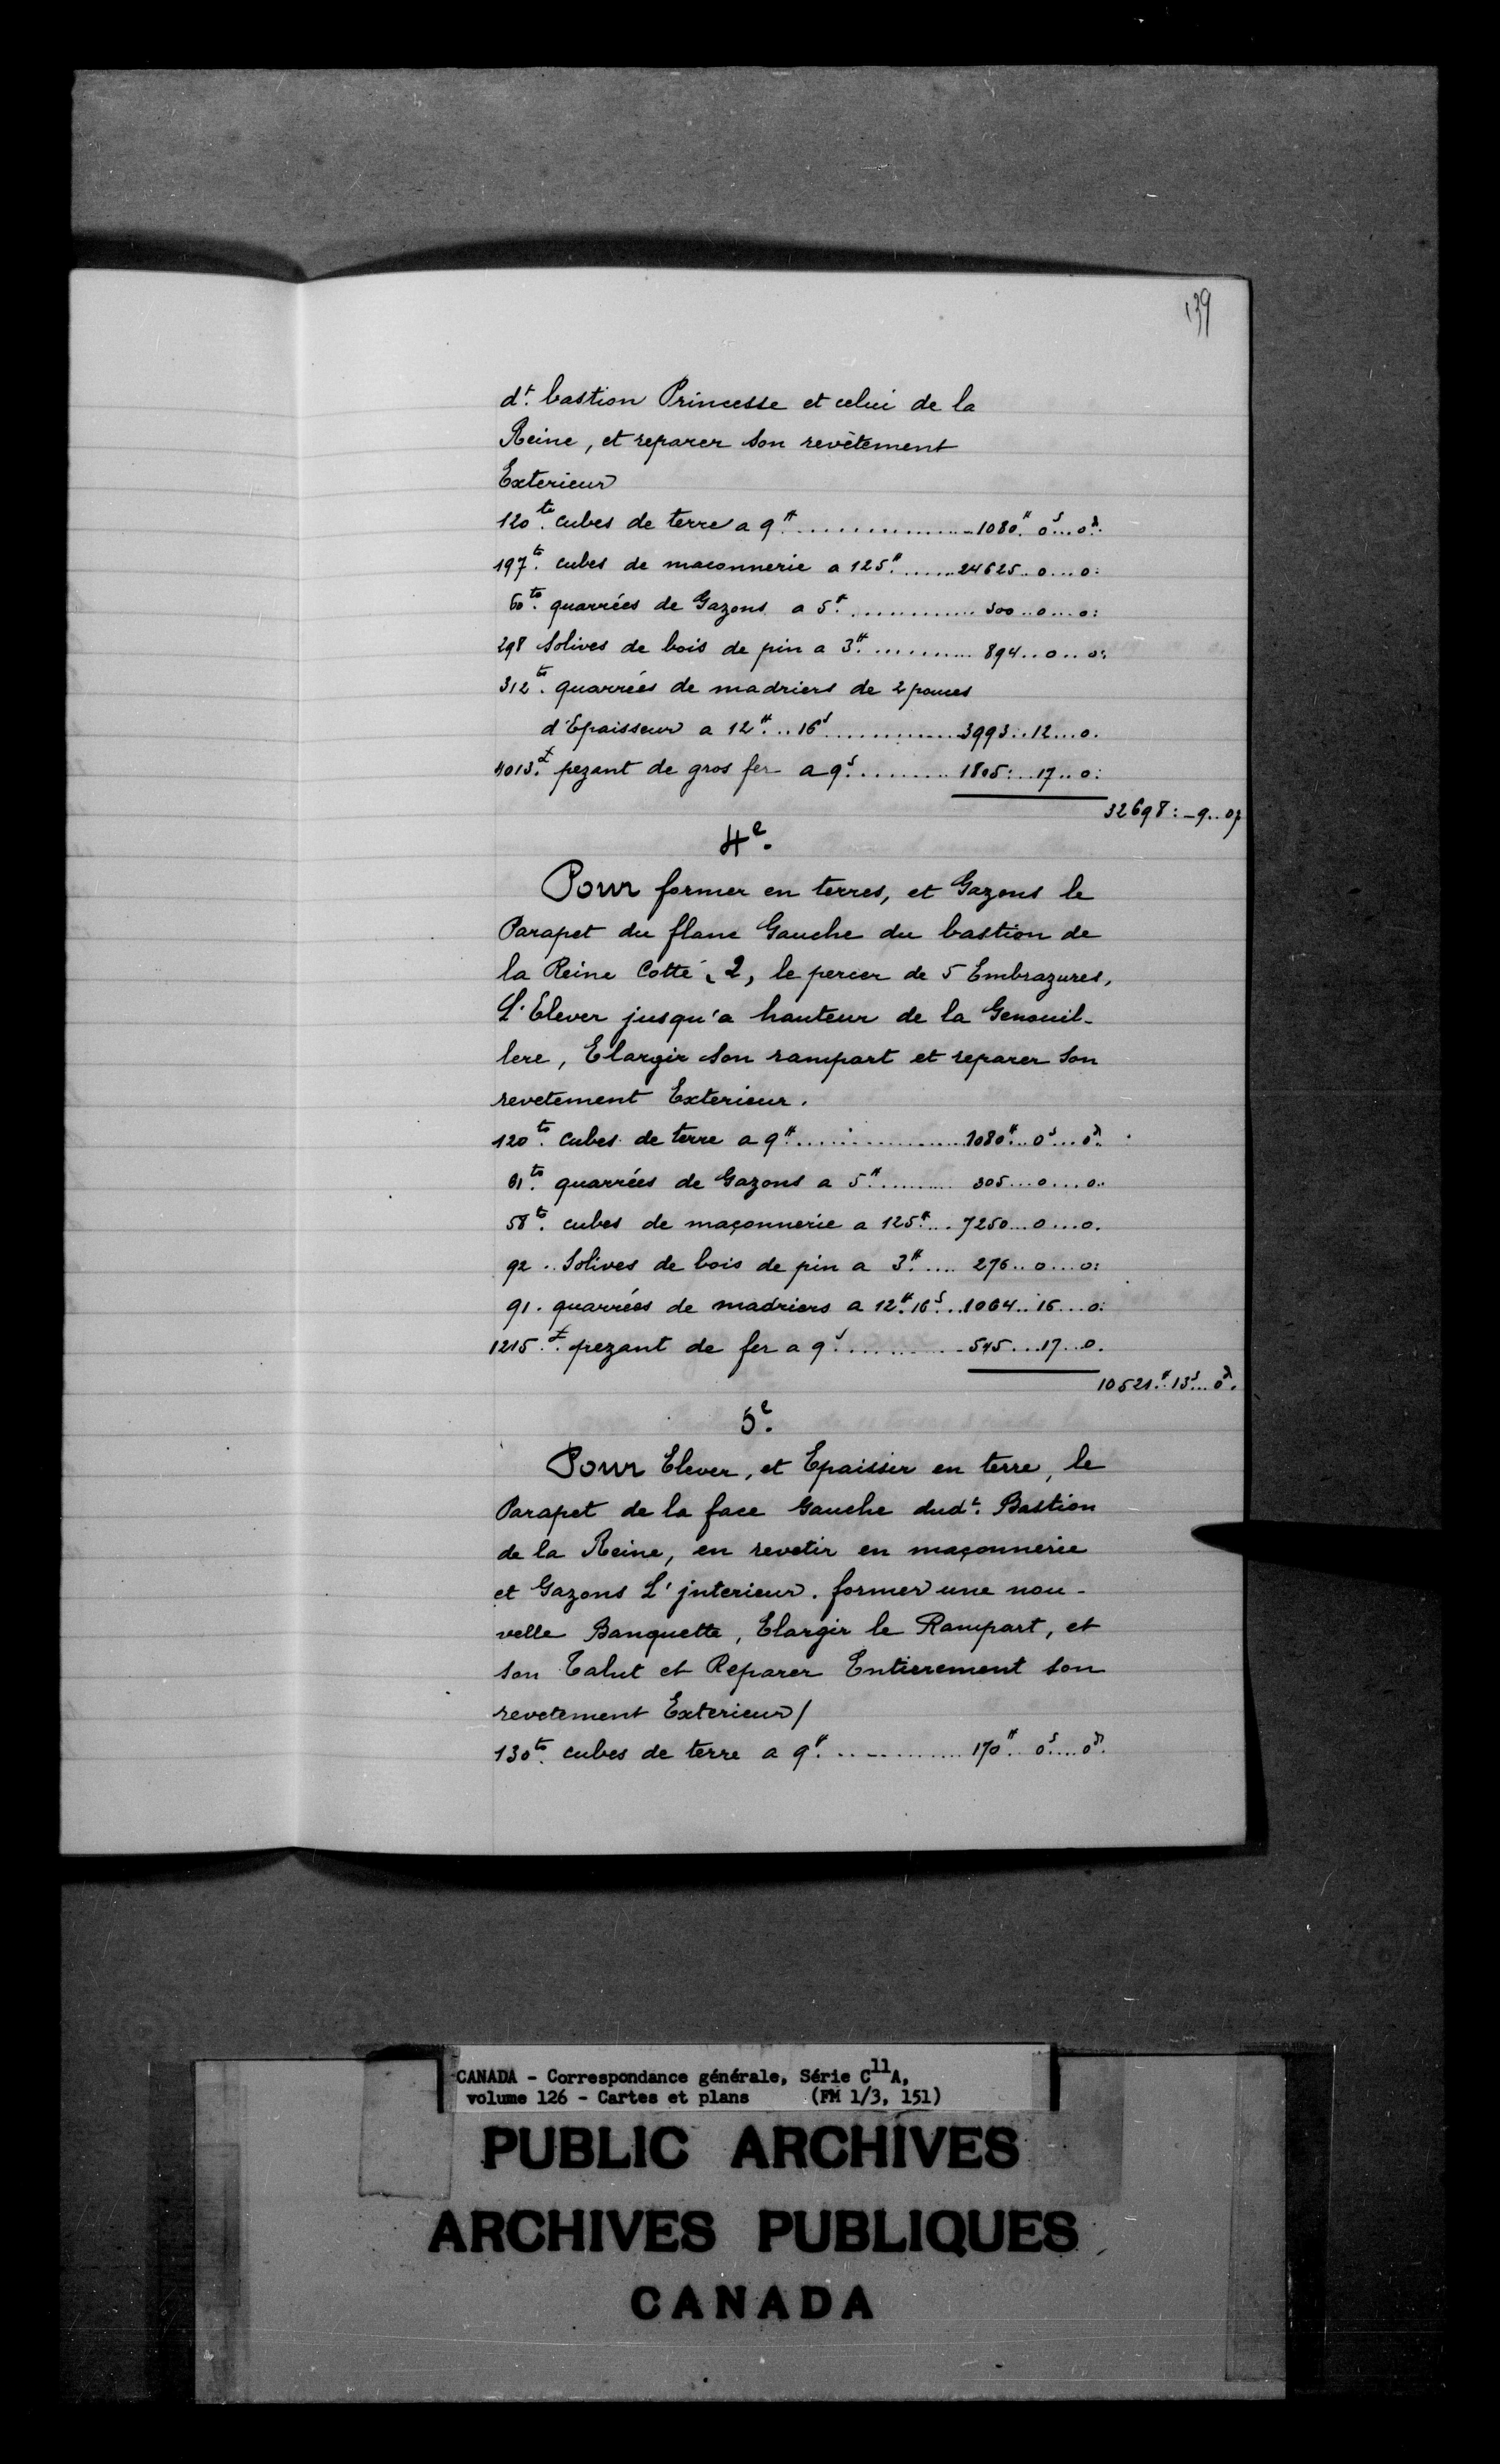 139
dt. bastion Princesse et celui de la
Reine, et reparer son revêtement
Exterieur
120 te. cubes de terre a 9# .................. 1080# 0s... 0d.
197 to. cubes de maconnerie a 125# ...... 24625.. 0.... 0:
60 to. quarrées de Gazons a 5# ............. 300.. 0.... 0:
298 Solives de bois de pin a 3# .......... 894.. 0.. 0:
312 to. quarrées de madriers de 2 pouces
d'Epaisseur a 12#... 16s .............. 3993.. 12... 0.
4013. £ pezant de gros fer a 9s .......... 1805:... 17.. 0:
32698: - 9.. 0
4e.
Pour former en terres, et Gazons le
Parapet du flanc Gauche du bastion de
la Reine Cotté 2, le percer de 5 Embrazures,
L'Elever jusqu'a hauteur de la Genouil-
lere, Elargir son rampart et reparer son
revetement Exterieur.
120 to. cubes de terre a 9# .................. 1080#... 0s... 0d.
61 to. quarrées de Gazons a 5# ......... 305... 0.... 0..
58 to. cubes de maçonnerie a 125#... 7250... 0.... 0.
92.. Solives de bois de pin a 3# .... 276.. 0.... 0:
91. quarrées de madriers a 12# 16s.. 1064.. 16... 0:
1215. £. prezant de fer a 9s ........... 545... 17.. 0.
10521#. 13s... 0d.
5e.
Pour Elever, et Epaissir en terre, le
Parapet de la face Gauche dudt. Bastion
de la Reine, en revetir en maçonnerie
et Gazons L'jnterieur. former une nou-
velle Banquette, Elargir le Rampart, et
son Talut et Reparer Entierement son
revetement Exterieur/
130 to. cubes de terre a 9# .............. 170#.. 0s.... 0d.
CANADA - Correspondance générale, Série C11A,
volume 126 - Cartes et plans (FM 1/3, 151)
PUBLIC ARCHIVES
ARCHIVES PUBLIQUES
CANADA